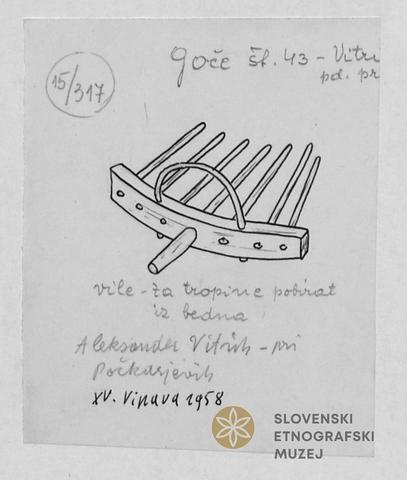 15/317
Goče št. 43 - Vitri
pd. pr
vile - za tropine pobirat
iz bedna
Aleksander Vitrih - pri
Počkarjevih
XV. Vipava 1958
SLOVENSKI
ETNOGRAFSKI
MUZEJ